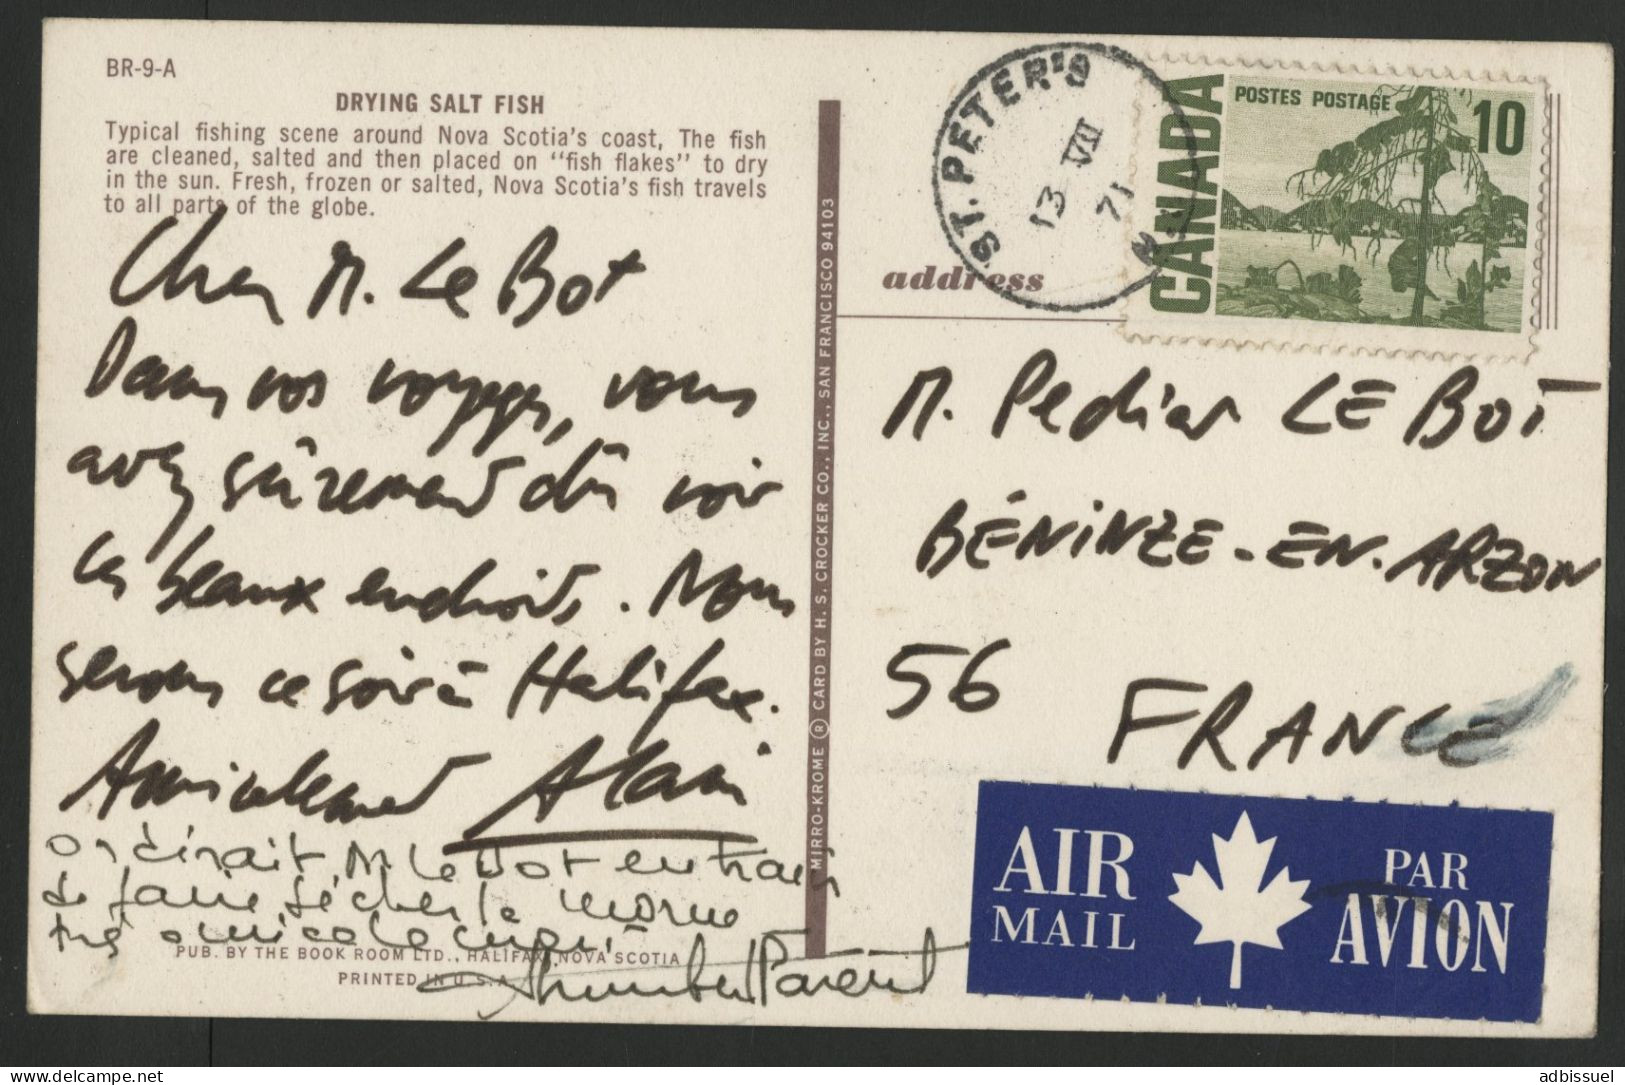 BR-9-A
DRYING SALT FISH
Typical fishing scene around Nova Scotia's coast, The fish
are cleaned, salted and then placed on "fish flakes" to dry
in the sun. Fresh, frozen or salted, Nova Scotia's fish travels
to all parts of the globe.
Cher M. Le Bot
Dans vos voyages, vous
avez sûrement dû voir
ces beaux endroits. Nous
serons ce soir à Halifax.
Amicalement Alain
on dirait M. Le Bot en train
de faire sécher la morue
très amicalement
PUB. BY THE BOOK ROOM LTD., HALIFAX, NOVA SCOTIA
PRINTED IN U.S.A.
MIRRO-KROME ® CARD BY H. S. CROCKER CO., INC., SAN FRANCISCO 94103
address
ST. PETER'S
13 VII
71
N.
CANADA
POSTES POSTAGE
10
M. LE BOT
BÉNINZE-EN-ARZON
56
FRANCE
AIR MAIL
PAR AVION
delcampe.net
adbissuel